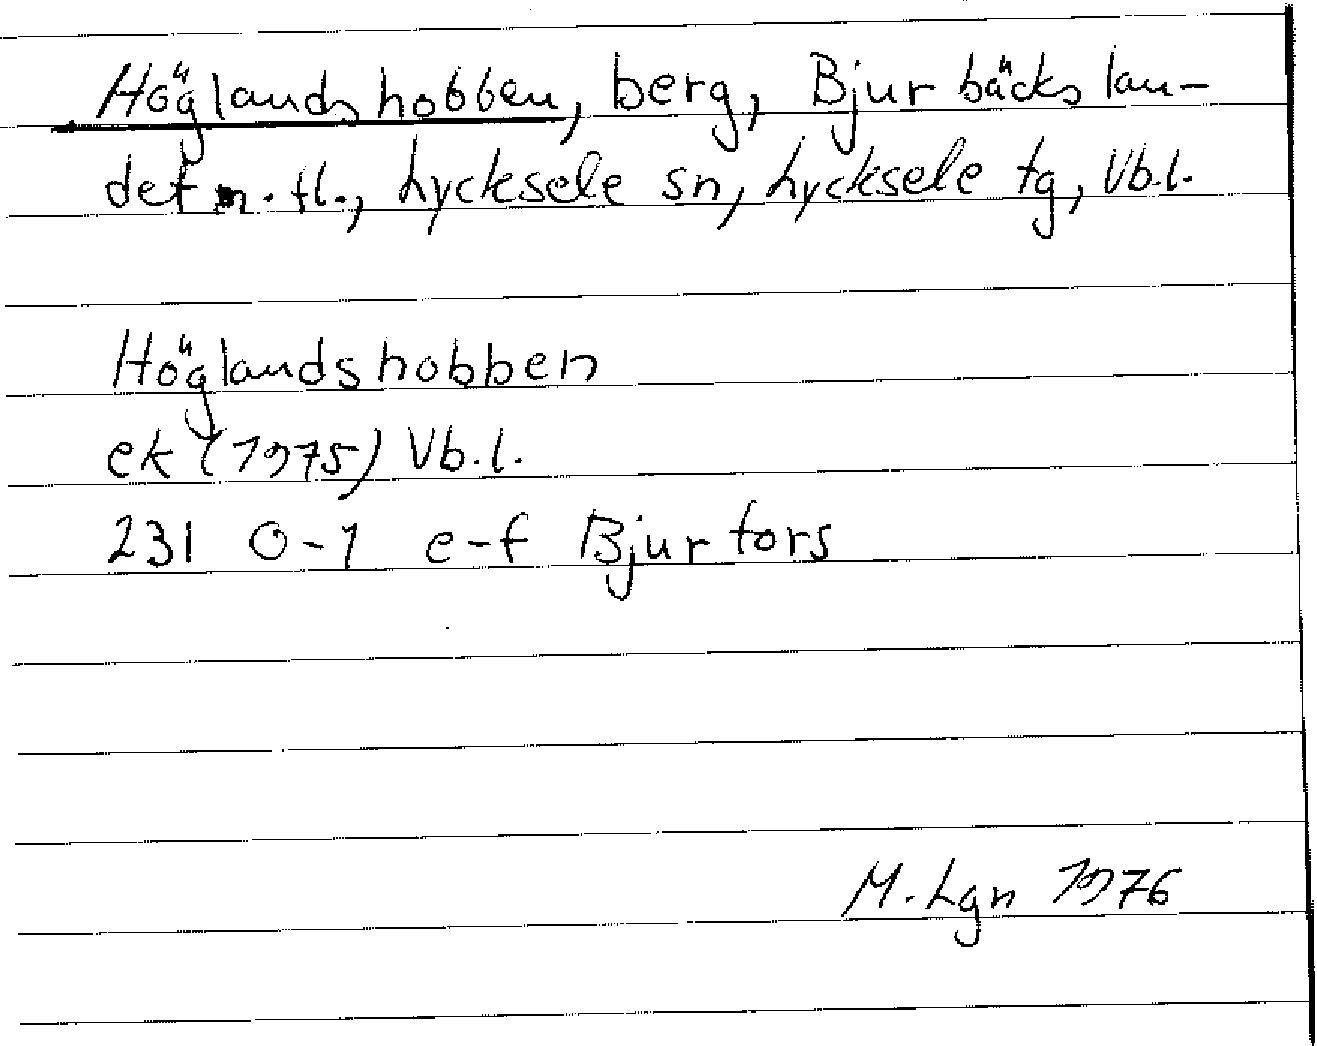 Höglandshobben, berg, Bjurbäckslan-
det m. fl., Lycksele sn, Lycksele tg, Vb.l.
Höglandshobben
ek (1975) Vb.l.
231 0-1 e-f Bjurfors
M. Lgn 1976